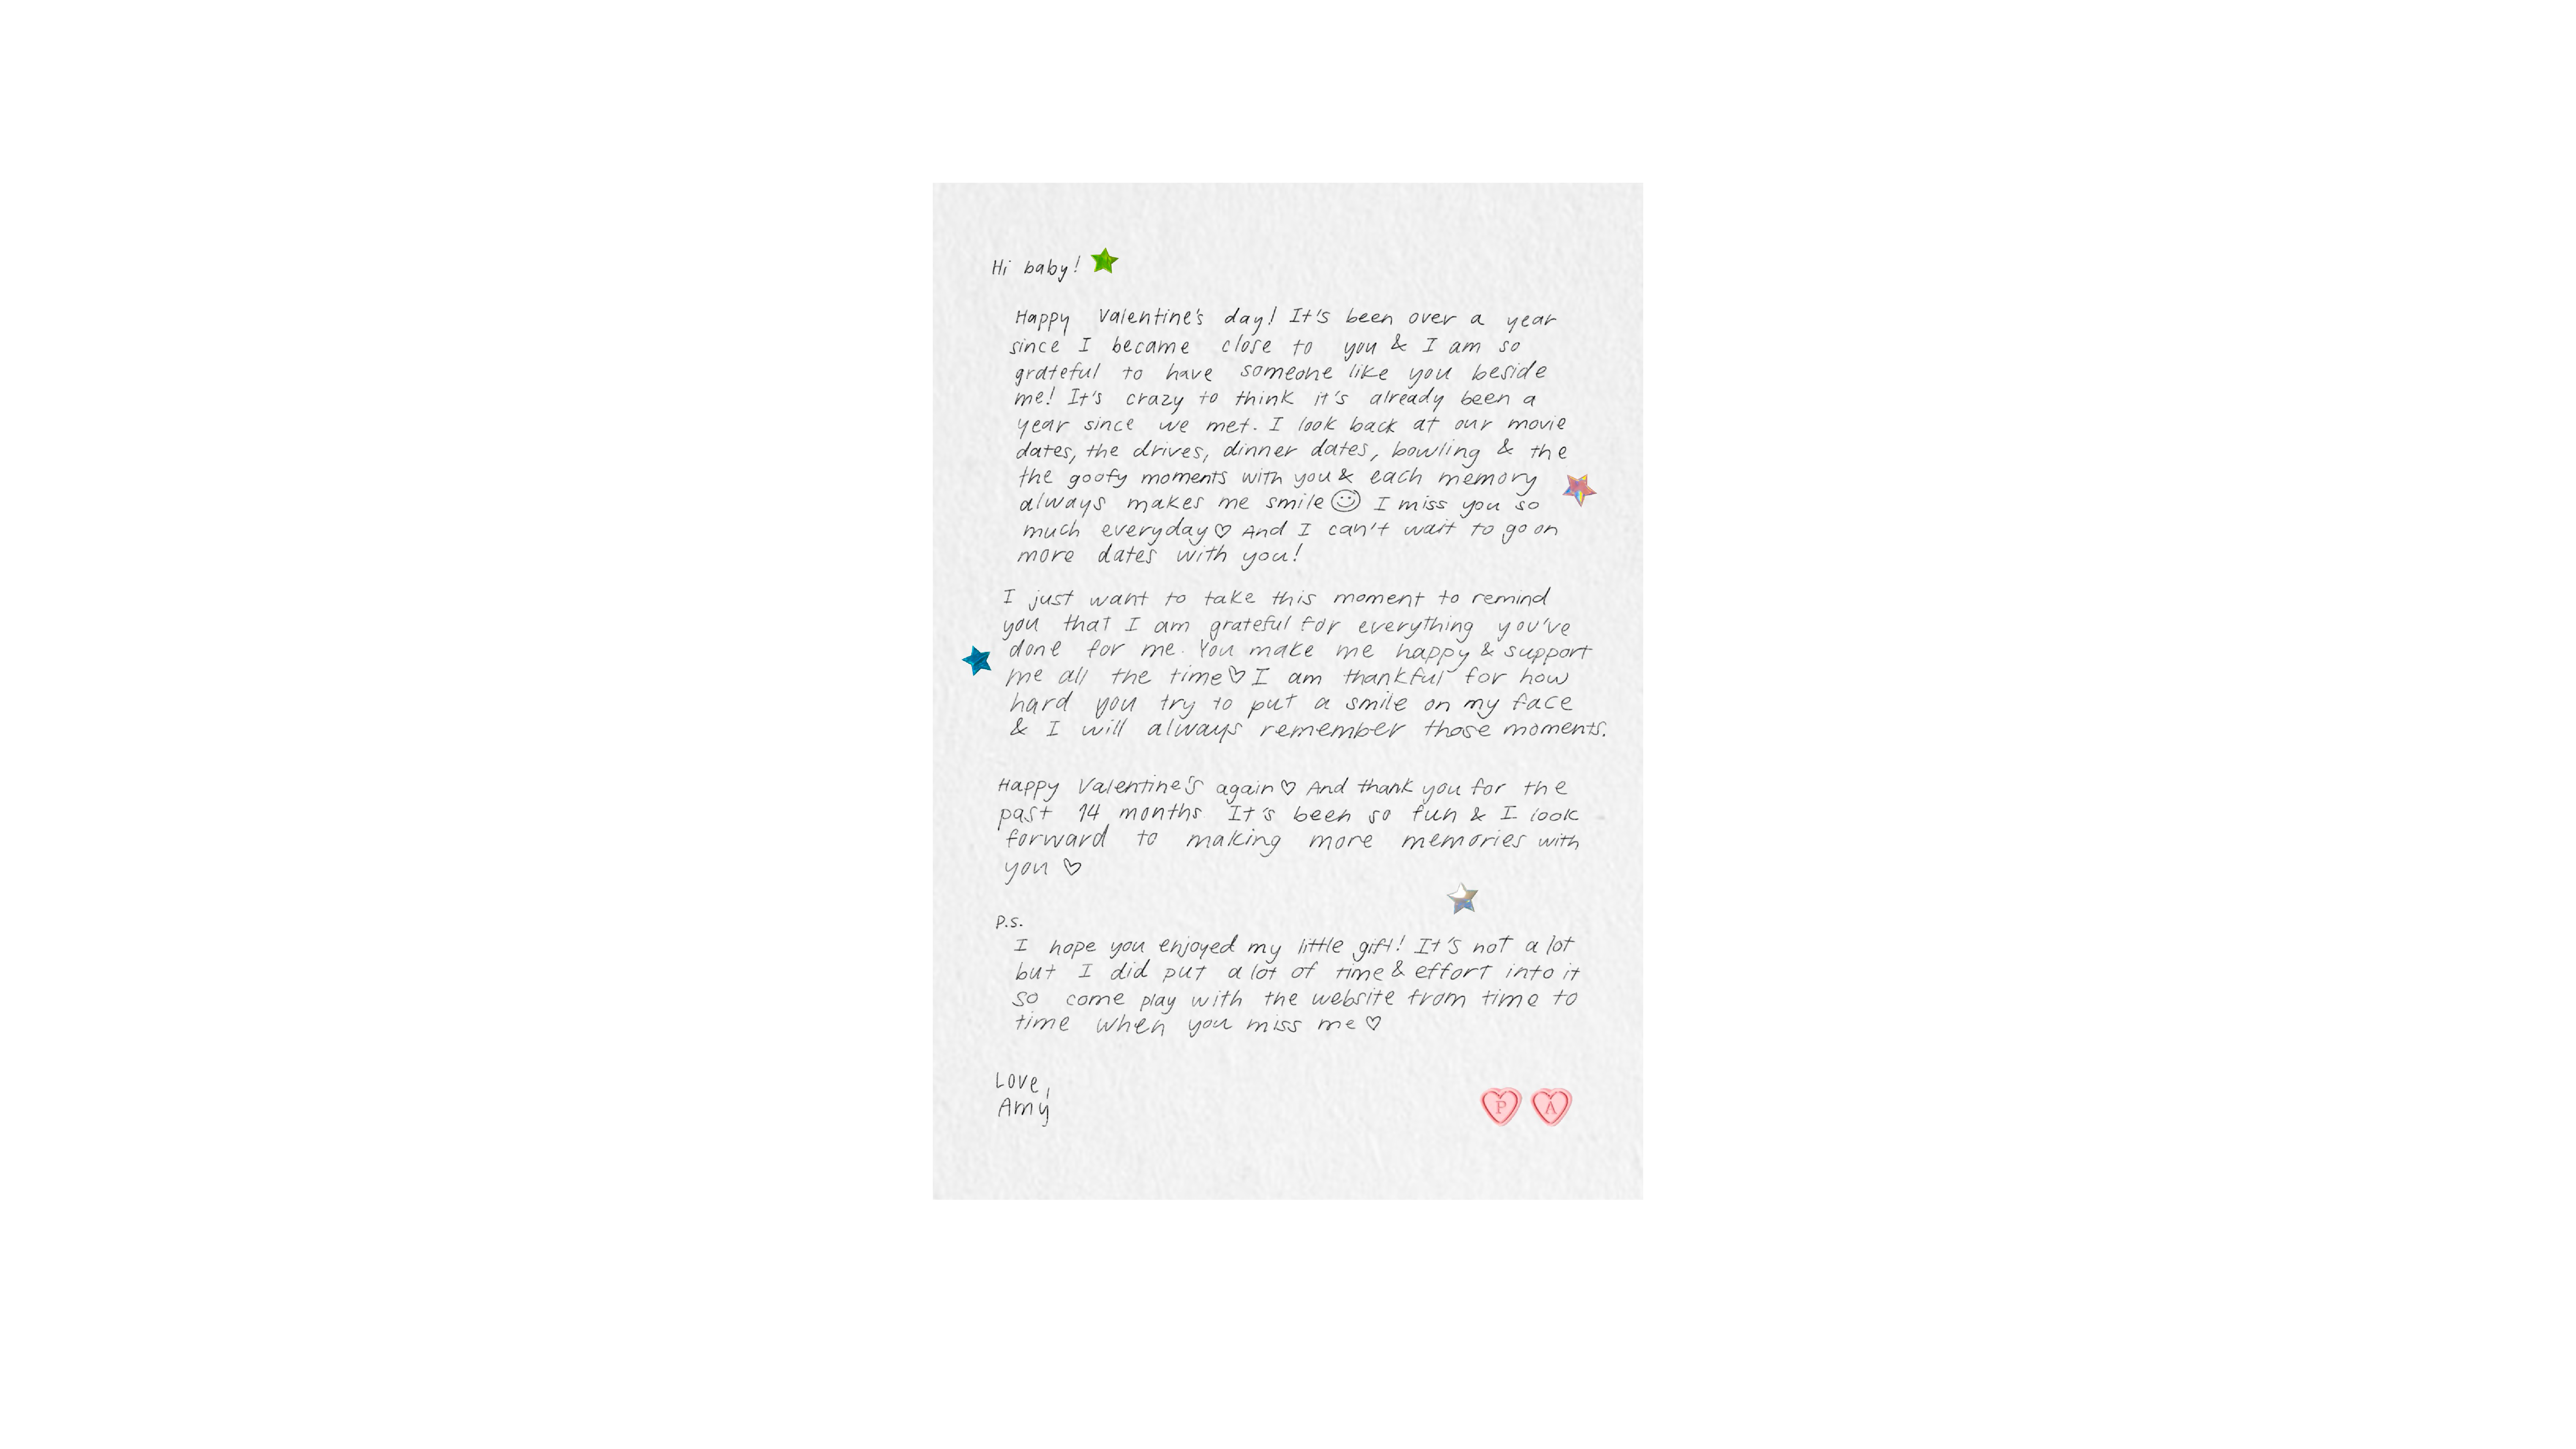 Hi baby!
Happy Valentine's day! It's been over a year
since I became close to you & I am so
grateful to have someone like you beside
me! It's crazy to think it's already been a
year since we met. I look back at our movie
dates, the drives, dinner dates, bowling & the
the goofy moments with you & each memory
always makes me smile ☺ I miss you so
much everyday♡ And I can't wait to go on
more dates with you!
I just want to take this moment to remind
you that I am grateful for everything you've
done for me. You make me happy & support
me all the time♡ I am thankful for how
hard you try to put a smile on my face
& I will always remember those moments.
Happy Valentine's again♡ And thank you for the
past 14 months It's been so fun & I look
forward to making more memories with
you ♡
P.S.
I hope you enjoyed my little gift! It's not a lot
but I did put a lot of time & effort into it
so come play with the website from time to
time when you miss me♡
Love,
Amy
P A